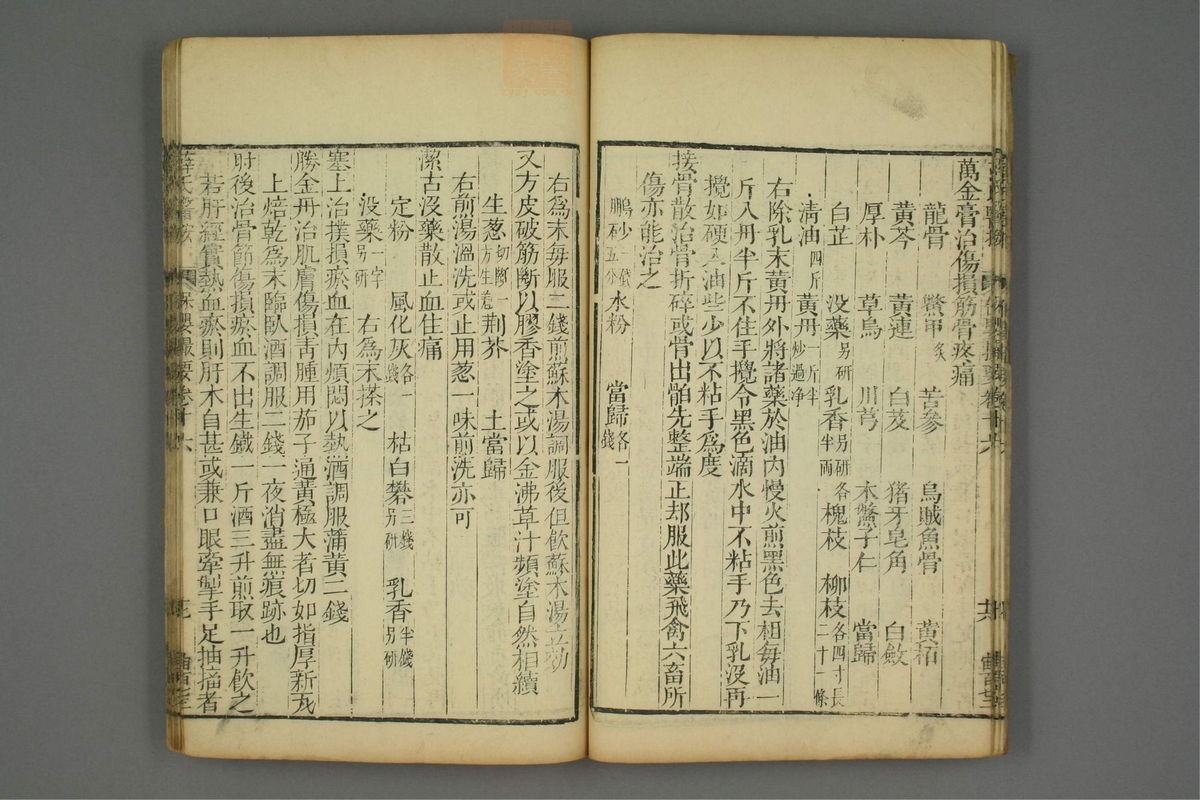 萬金膏治傷損筋骨疼痛
龍骨 鱉甲炙 苦參 烏賊魚骨 黃栢
黃芩 黃連 白芨 猪牙皂角 白斂
厚朴 草烏 川芎 木鱉子仁 當歸
白芷 没藥另研 乳香另研各半兩 槐枝 柳枝各四寸長二十一條
清油四斤 黃丹一斤半炒過净
右除乳末黃丹外將諸藥於油內慢火煎黑色去柤每油一
斤入丹半斤不住手攪令黑色滴水中不粘手乃下乳沒再
攪如硬入油些少以不粘手爲度
接骨散治骨折碎或骨出骱先整端正却服此藥飛禽六畜所
傷亦能治之
鵬砂一錢五分 水粉 當歸各一錢
右爲末每服二錢煎蘇木湯調服後但飲蘇木湯立効
又方皮破筋斷以膠香塗之或以金沸草汁頻塗自然相續
生葱切斷 荆芥 土當歸
右煎湯溫洗或止用葱一味煎洗亦可
潔古沒藥散止血住痛
定粉 風化灰各一錢 枯白礬三錢别研 乳香半錢别研
没藥一字另研 右爲末搽之
塞上治撲損瘀血在內煩悶以熱酒調服蒲黃二錢
勝金丹治肌膚傷損靑腫用茄子通黃極大者切如指厚新瓦
上焙乾爲末臨臥酒調服二錢一夜消盡無痕跡也
肘後治骨節傷損瘀血不出生鐵一斤酒三升煎取一升飲之
若肝經實熱血瘀則肝木自甚或兼口眼牽掣手足抽搐者
薛氏醫按 保嬰撮要卷十六